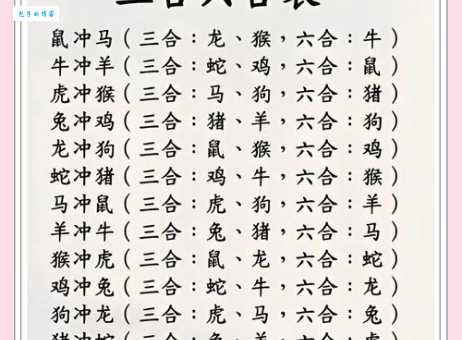 包子的博客
三合六合表
鼠冲马（三合：龙、猴，六合：牛）
牛冲羊（三合：蛇、鸡，六合：鼠）
虎冲猴（三合：马、狗，六合：猪）
兔冲鸡（三合：猪、羊，六合：狗）
龙冲狗（三合：鼠、猴，六合：鸡）
蛇冲猪（三合：鸡、牛，六合：猴）
马冲鼠（三合：虎、狗，六合：羊）
羊冲牛（三合：兔、猪，六合：马）
猴冲虎（三合：鼠、龙，六合：蛇）
鸡冲兔（三合：蛇、牛，六合：龙）
狗冲龙（三合：虎、马，六合：兔）
猪冲蛇（三合：兔、羊，六合：虎）